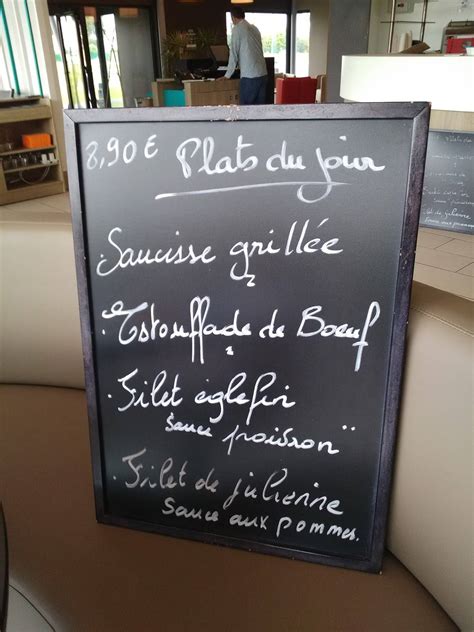 8,90 € Plats du jour
Saucisse grillée
. Estouffade de Boeuf
. Filet églefin
sauce poisson
. Filet de julienne
Sauce aux pommes.